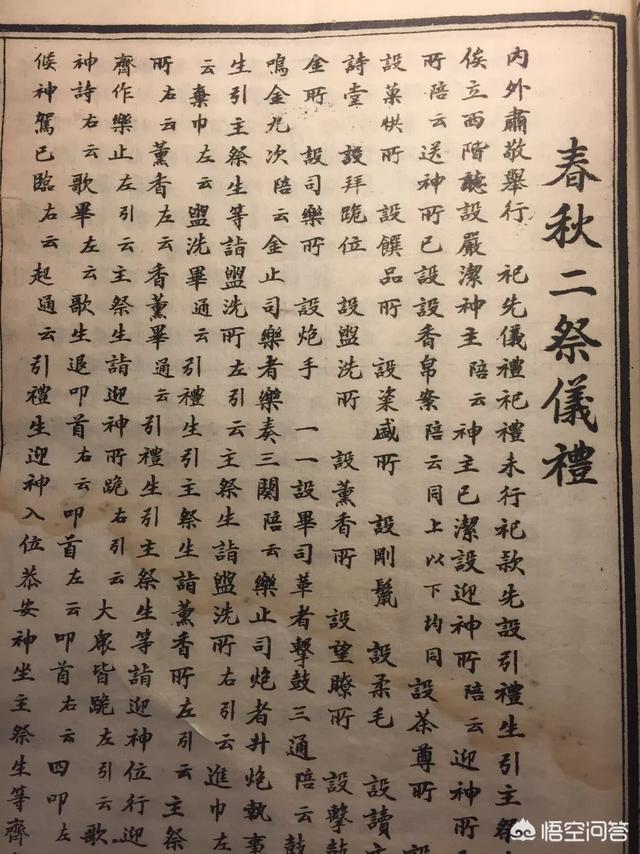 春秋二祭儀禮
內外肅敬舉行 祀先儀禮祀禮未行祀款先設引禮生引主祭
俟立西階聽設嚴潔神主陪云神主已潔設迎神所陪云迎神所
所陪云送神所已設設香帛案陪云同上以下均同 設茶尊所 設
設菓烘所 設饌品所 設粢盛所 設剛鬣 設柔毛 設讀
詩堂 設拜跪位 設盥洗所 設薰香所 設望瞭所 設擊鼓
金所 設司樂所 設炮手 一一設畢司革者擊鼓三通陪云鼓
鳴金九次陪云金止司樂者樂奏三闋陪云樂止司炮者升炮執事
生引主祭生等詣盥洗所左引云主祭生詣盥洗所右引云進巾左
云棄巾左云盥洗畢通云引禮生引主祭生詣薰香所左引云主祭
所右云薰香左云香薰畢通云引禮生引主祭生等詣迎神位行迎
齊作樂止左引云主祭生詣迎神所跪右引云大眾皆跪左引云歌
神詩右云歌畢左云歌生退叩首右云叩首左云叩首右云四叩左
候神駕已臨右云起通云引禮生迎神入位恭安神坐主祭生等齊
悟空问答